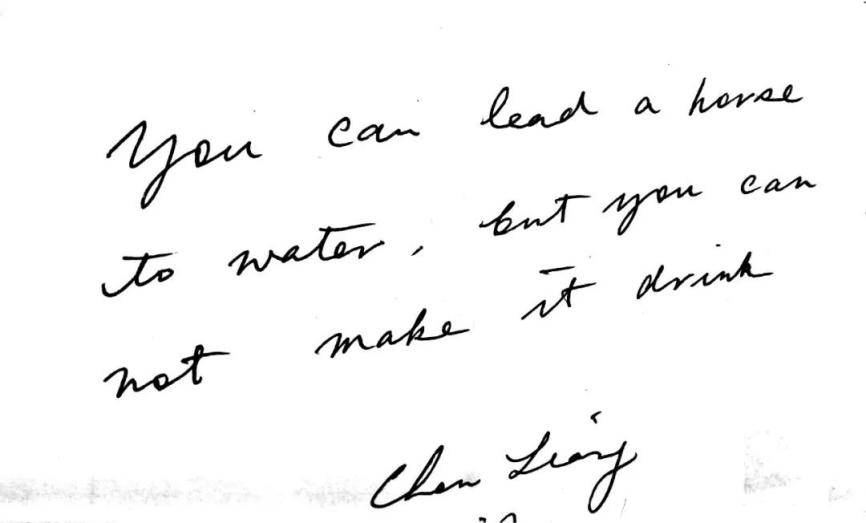 You can lead a horse
to water, but you can
not make it drink
Chen Liang